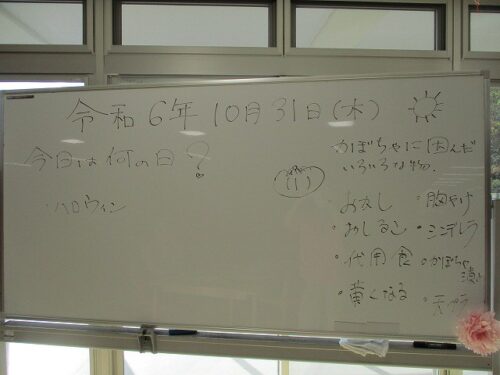 令和6年10月31日(木)
今日は何の日?
・ハロウィン
かぼちゃに因んだ
いろいろな物.
・お灸し
・胸やけ
・おしるこ
・シンデレラ
・代用食
・かぼちゃ
・黄くなる
・天ぷら